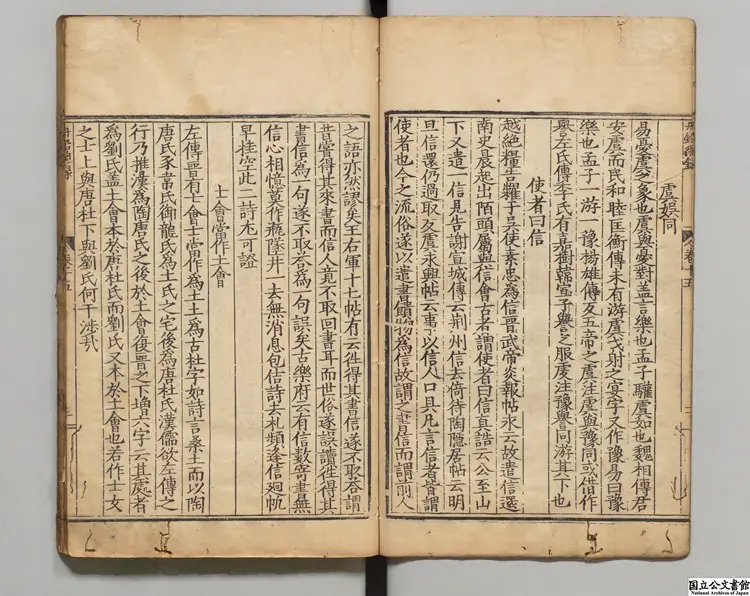 虞娛同
易憂虞之象也虞與憂對蓋言樂也孟子驩虞如也魏相傳君
安虞而民和睦匡衡傳未有游虞弋射之宴字又作豫易曰豫
樂也孟子一游一豫楊雄傳反五帝之虞注虞與豫同或借作
譽左氏傳季氏有嘉樹韓宣子譽之服虔注豫譽同游其下也
使者曰信
越絕糧告糶于吳使素忠為信晉武帝炎報帖末云故遣信還
南史晨起出陌頭屬與信會古者謂使者曰信真誥云公至山
下又遣一信見告謝宣城傳云荆州信去倚待陶隱居帖云明
旦信還仍過取反虞永興帖云事以信人口具凡言信者皆謂
使者也今之流俗遂以遺書餽物為信故謂之書信而謂前人
之語亦然謬矣王右軍十七帖有云往得其書信遂不取荅謂
昔嘗得其來書而信人竟不取回書耳而世俗遂誤讀往得其
書信為一句遂不取荅為一句誤矣古樂府云有信數寄書無
信心相憶莫作瓶墜井一去無消息包佶詩去札頻逢信廻帆
早挂空此二詩尤可證
士會當作土會
左傳晉有士會士當作為土土為古杜字如詩言桑土而以陶
唐氏豕韋氏御龍氏為士氏之宅後為唐杜氏漢儒欲左傳之
行乃推漢為陶唐氏之後於士會復晉之下增六字云其處者
為劉氏蓋土會本於唐杜氏而劉氏又本於士會也若作士女
之士上與唐杜下與劉氏何干涉哉
国立公文書館
National Archives of Japan